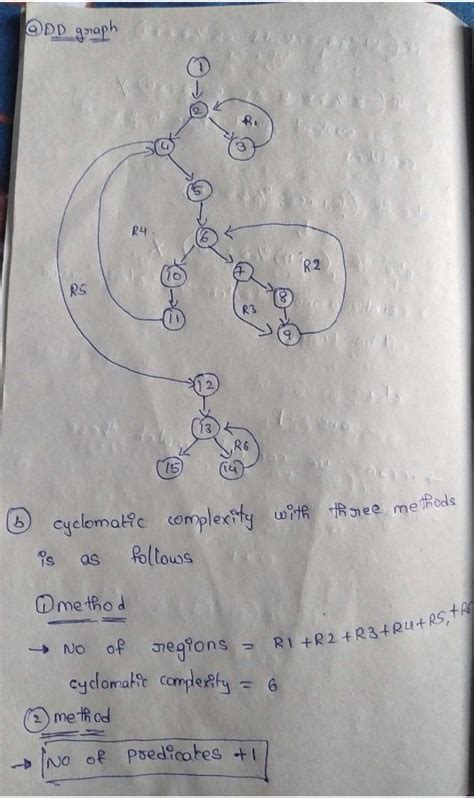 ⓐ DD graph
1
2
R1
4
3
5
R4
6
10
7
R2
R5
8
11
R3
9
12
13
R6
15
14
ⓑ cyclomatic complexity with three methods
is as follows
① method
→ No of regions = R1+R2+R3+R4+R5,+R6
cyclomatic complexity = 6
② method
→ No of predicates +1